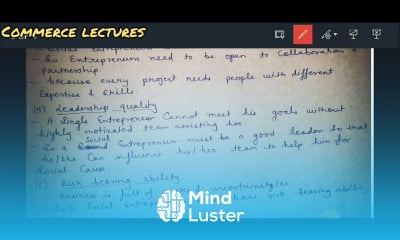 COMMERCE LECTURES
- Social Entrepreneurs
- So Entrepreneurs need to be open to Collaboration &
Partnership.
- because every project needs people with different
Expertise & Skills.
(5) Leadership quality
- A Single Entrepreneur Cannot meet his goals without
highly motivated team assisting him.
- So a Social Entrepreneur must be a good leader so that
he/she Can influence his/her team to help him for
Social Cause.
Risk bearing ability
- Business is full of uncertainties
So a Social have risk bearing ability
Mind
Luster